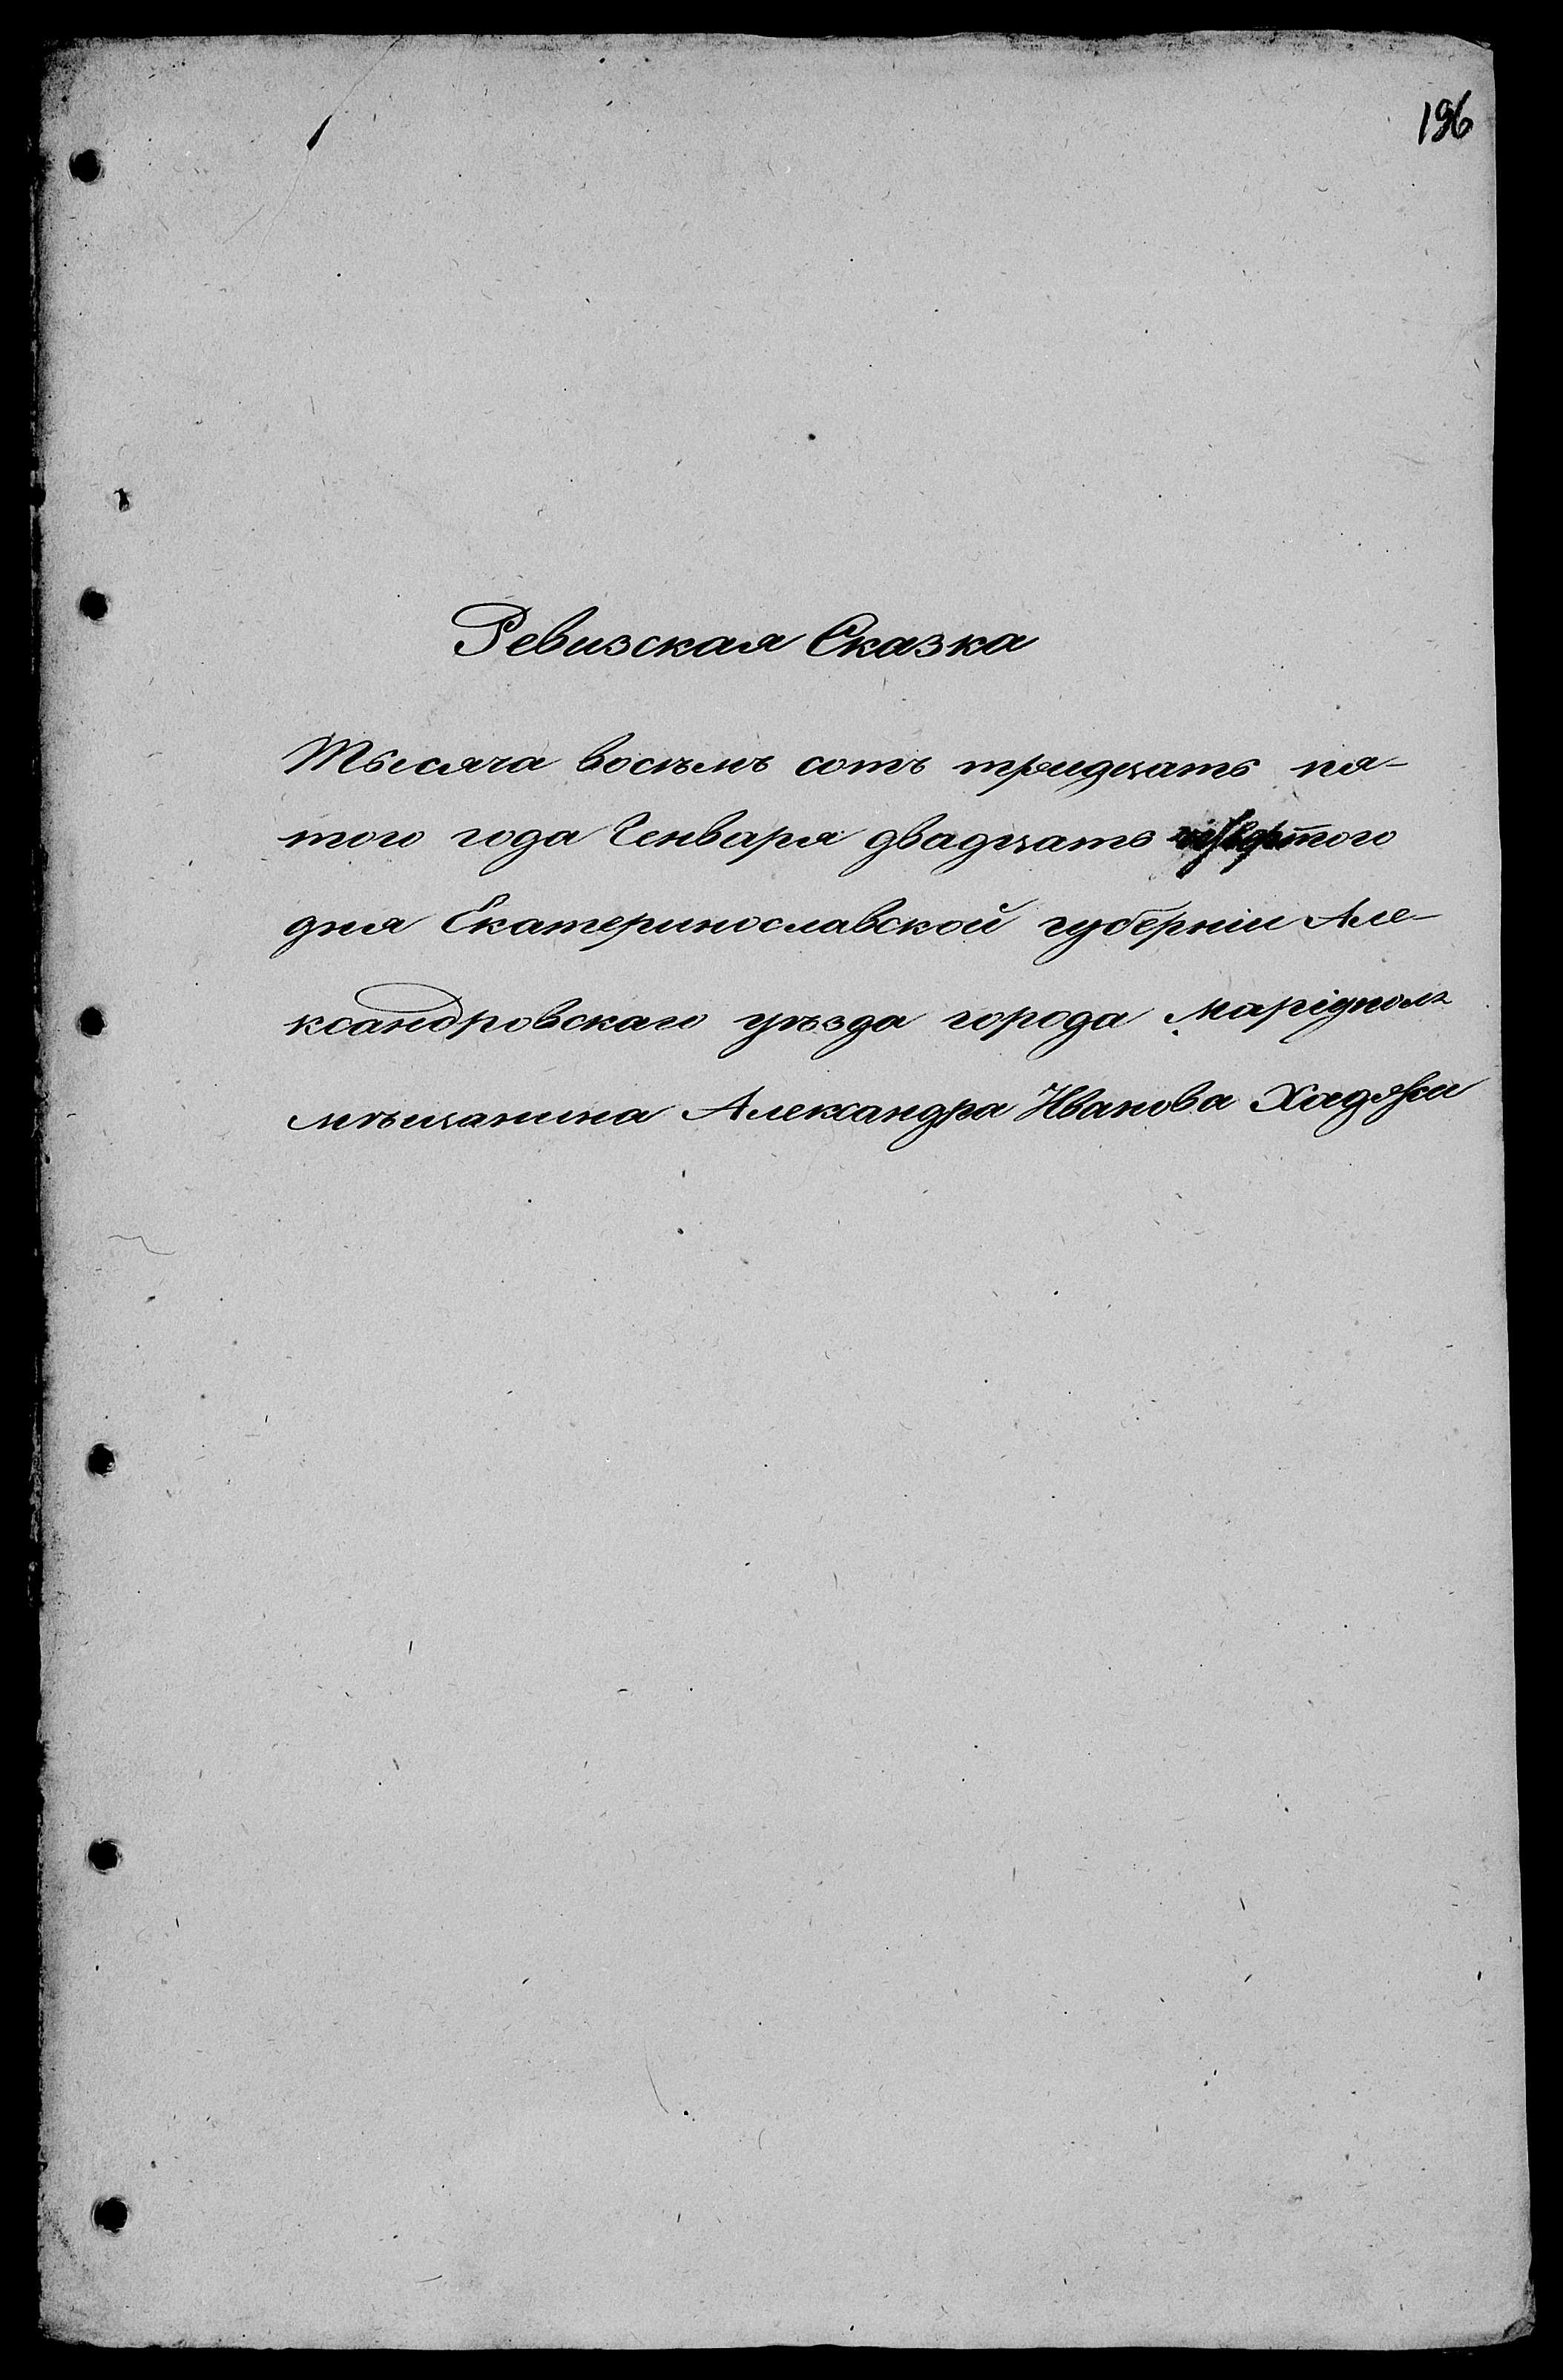 196
Ревизская Сказка
Тысяча восѣмъ сотъ тридцать пя-
того года Генваря двадцать четвертого
дня Екатеринославской губерніи Але-
ксандровскаго уѣзда города Маріуполя
мѣщанина Александра Иванова Хаджи